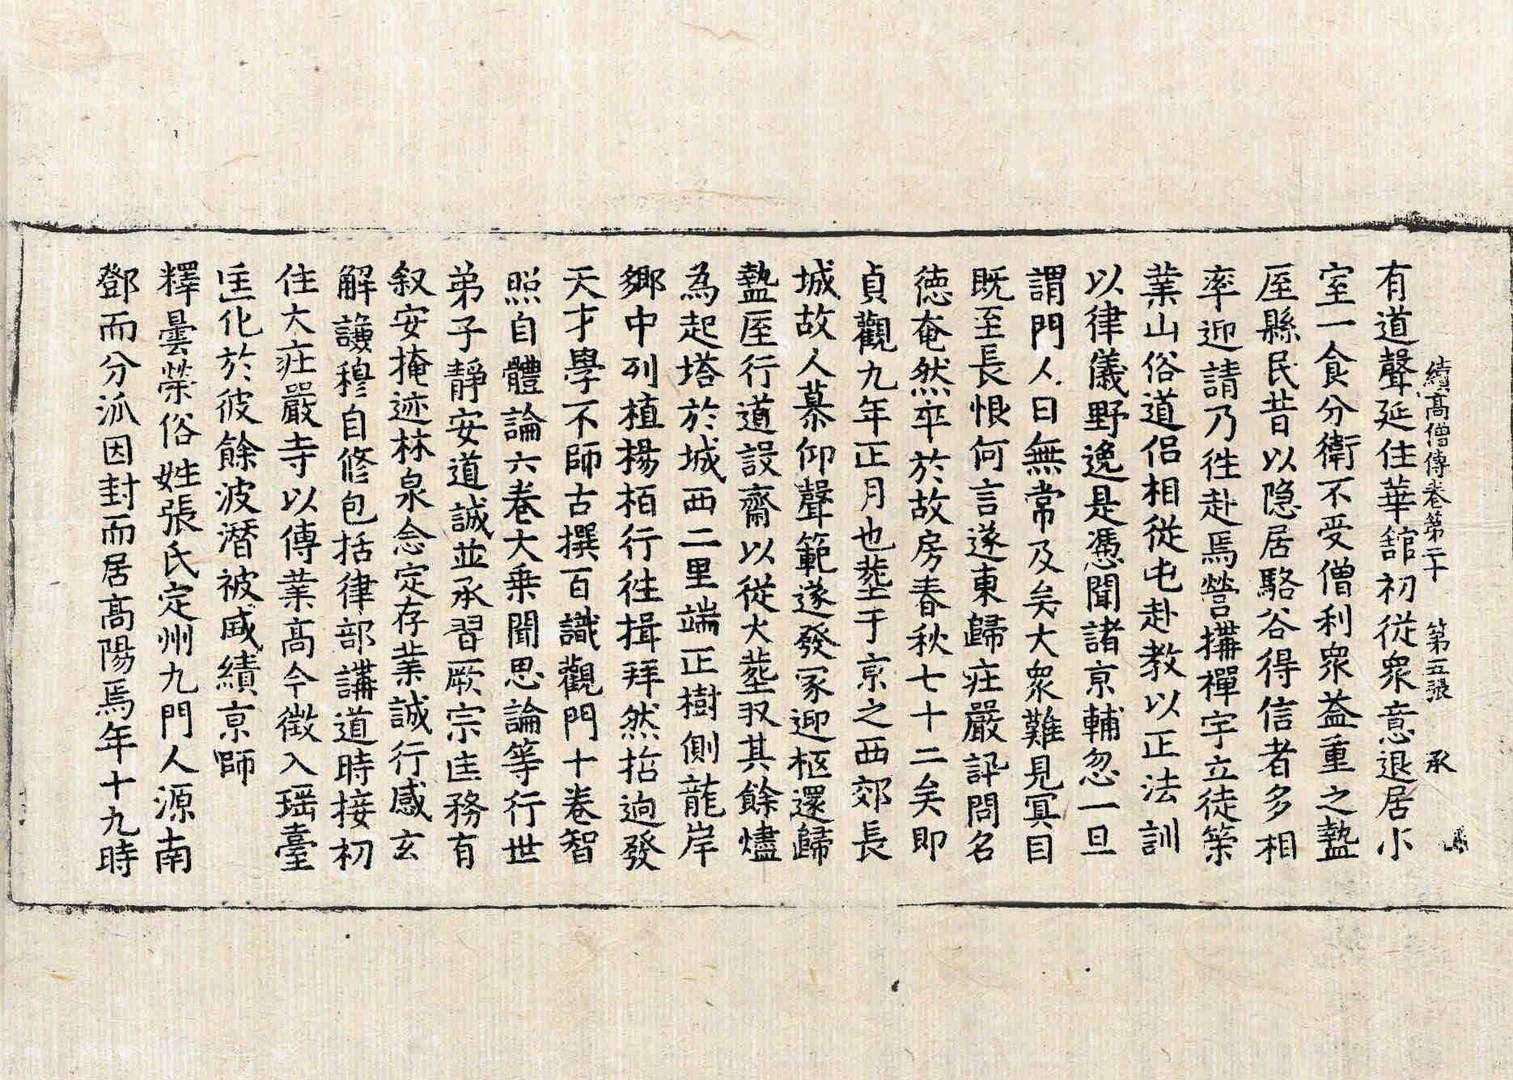 續高僧傳卷第二十　第五張　承
有道聲延住華舘初從衆意退居小
室一食分衛不受僧利衆益重之盩
厔縣民昔以隐居駱谷得信者多相
率迎請乃徃赴焉營搆禪宇立徒策
業山俗道侶相從屯赴教以正法訓
以律儀野逸是憑聞諸京輔忽一旦
謂門人曰無常及矣大衆難見冥目
既至長恨何言遂東歸莊嚴訊問名
德奄然卒於故房春秋七十二矣即
貞觀九年正月也塟于京之西郊長
城故人慕仰聲範遂發冢迎柩還歸
盩厔行道設齋以從火塟収其餘燼
為起塔於城西二里端正樹側龍岸
鄉中列植楊栢行徃揖拜然招逈發
天才學不師古撰百識觀門十卷智
照自體論六卷大乗聞思論等行世
弟子靜安道誠並承習厥宗匡務有
叙安掩迹林泉念定存業誠行感玄
解護穆自修包括律部講道時接初
住大莊嚴寺以傳業髙今徵入瑶臺
匡化於彼餘波潛被威績京師
釋曇榮俗姓張氏定州九門人源南
鄧而分泒因封而居髙陽焉年十九時